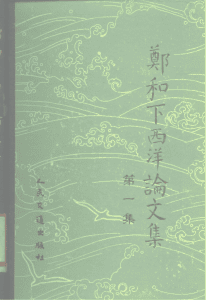 鄭和下西洋論文集
第一集
人民交通出版社